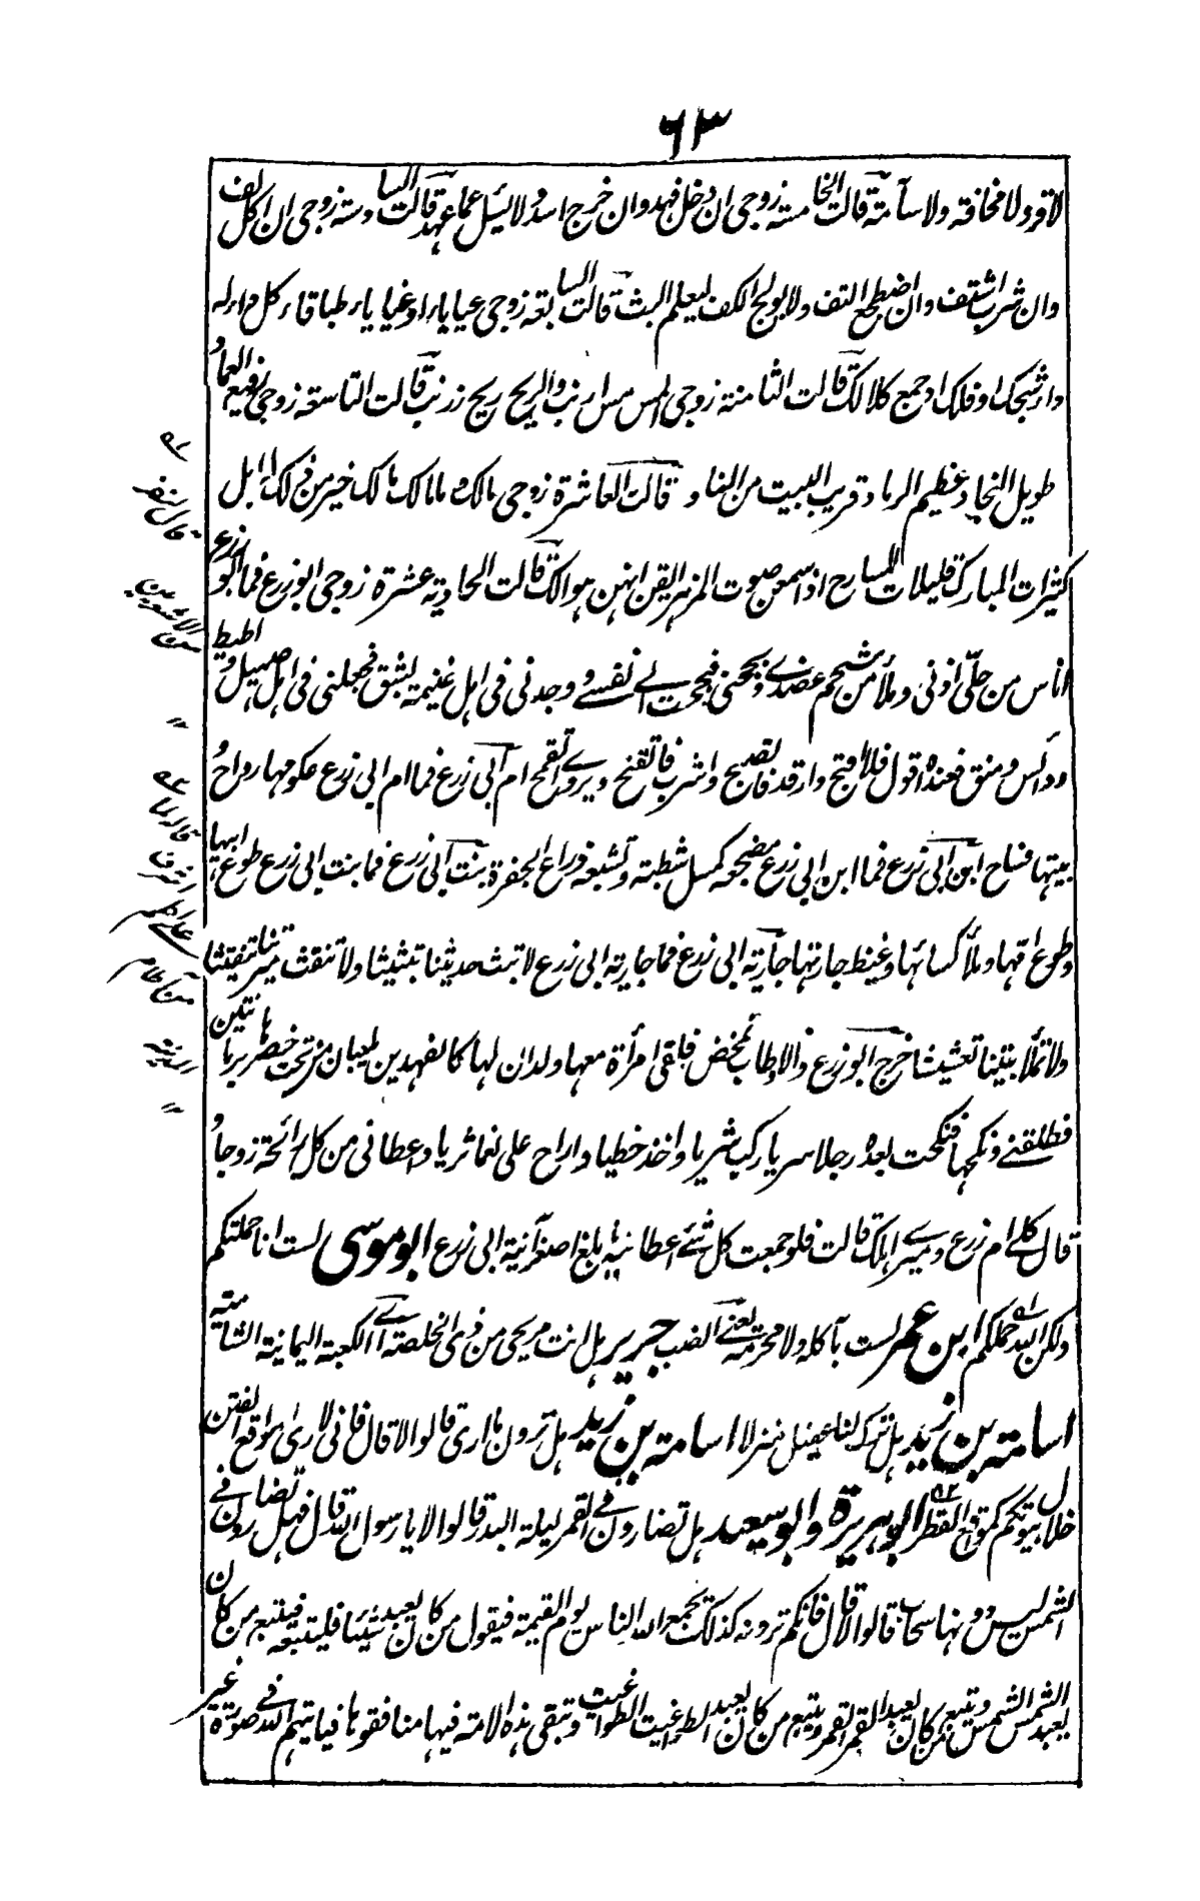 ٦٣
لا قر ولا مخافة ولا سآمة قالت الخامسة زوجي ان دخل فهد وان خرج اسد ولا يسئل عما عهد قالت السادسة زوجي ان اكل لف
وان شرب اشتف وان اضطجع التف ولا يولج الكف ليعلم البث قالت السابعة زوجي عياياء او غياياء طباقاء كل داء له
داء شجك او فلك او جمع كلا لك قالت الثامنة زوجي المس مس ارنب والريح ريح زرنب قالت التاسعة زوجي رفيع العماد
طويل النجاد عظيم الرماد قريب البيت من الناد قالت العاشرة زوجي مالك وما مالك مالك خير من ذلك له ابل
كثيرات المبارك قليلات المسارح اذا سمعن صوت المزهر ايقن انهن هوالك قالت الحادية عشرة زوجي ابو زرع فما ابو زرع
اناس من حلي اذني وملأ من شحم عضدي وبجحني فبجحت الي نفسي وجدني في اهل غنيمة بشق فجعلني في اهل صهيل واطيط
ودائس ومنق فعنده اقول فلا اقبح وارقد فاتصبح واشرب فاتقنح ويروى فاتقمح ام ابي زرع فما ام ابي زرع عكومها رداح و
بيتها فساح ابن ابي زرع فما ابن ابي زرع مضجعه كمسل شطبة وتشبعه ذراع الجفرة بنت ابي زرع فما بنت ابي زرع طوع ابيها
وطوع امها وملأ كسائها وغيظ جارتها جارية ابي زرع فما جارية ابي زرع لا تبث حديثنا تبثيثا ولا تنقث ميرتنا تنقيثا
ولا تملأ بيتنا تعشيشا خرج ابو زرع والاوطاب تمخض فلقي امرأة معها ولدان لها كالفهدين يلعبان من تحت خصرها برمانتين
فطلقني ونكحها فنكحت بعده رجلا سريا ركب شريا واخذ خطيا واراح علي نعما ثريا واعطاني من كل رائحة زوجا و
قال كلي ام زرع وميري اهلك قالت فلو جمعت كل شئ اعطانيه ما بلغ اصغر آنية ابي زرع ابو موسى لست انا حملتكم
ولكن الله حملكم ابن عمر لست بآكله ولا محرمه يعني الضب جرير هل انت مريحي من ذي الخلصة اي الكعبة اليمانية الشامية
اسامة بن زيد هل ترك لنا عقيل منزلا اسامة بن زيد هل ترون ما ارى قالوا لا قال فاني لارى مواقع الفتن
خلال بيوتكم كمواقع القطر ابو هريرة وابو سعيد هل تضارون في القمر ليلة البدر قالوا لا يا رسول الله قال فهل تضارون في
الشمس ليس دونها سحاب قالوا لا قال فانكم ترونه كذلك يجمع الله الناس يوم القيمة فيقول من كان يعبد شيئا فليتبعه فيتبع من كان
يعبد الشمس الشمس ويتبع من كان يعبد القمر القمر ويتبع من كان يعبد الطواغيت الطواغيت وتبقى هذه الامة فيها منافقوها فياتيهم الله في صورة غير